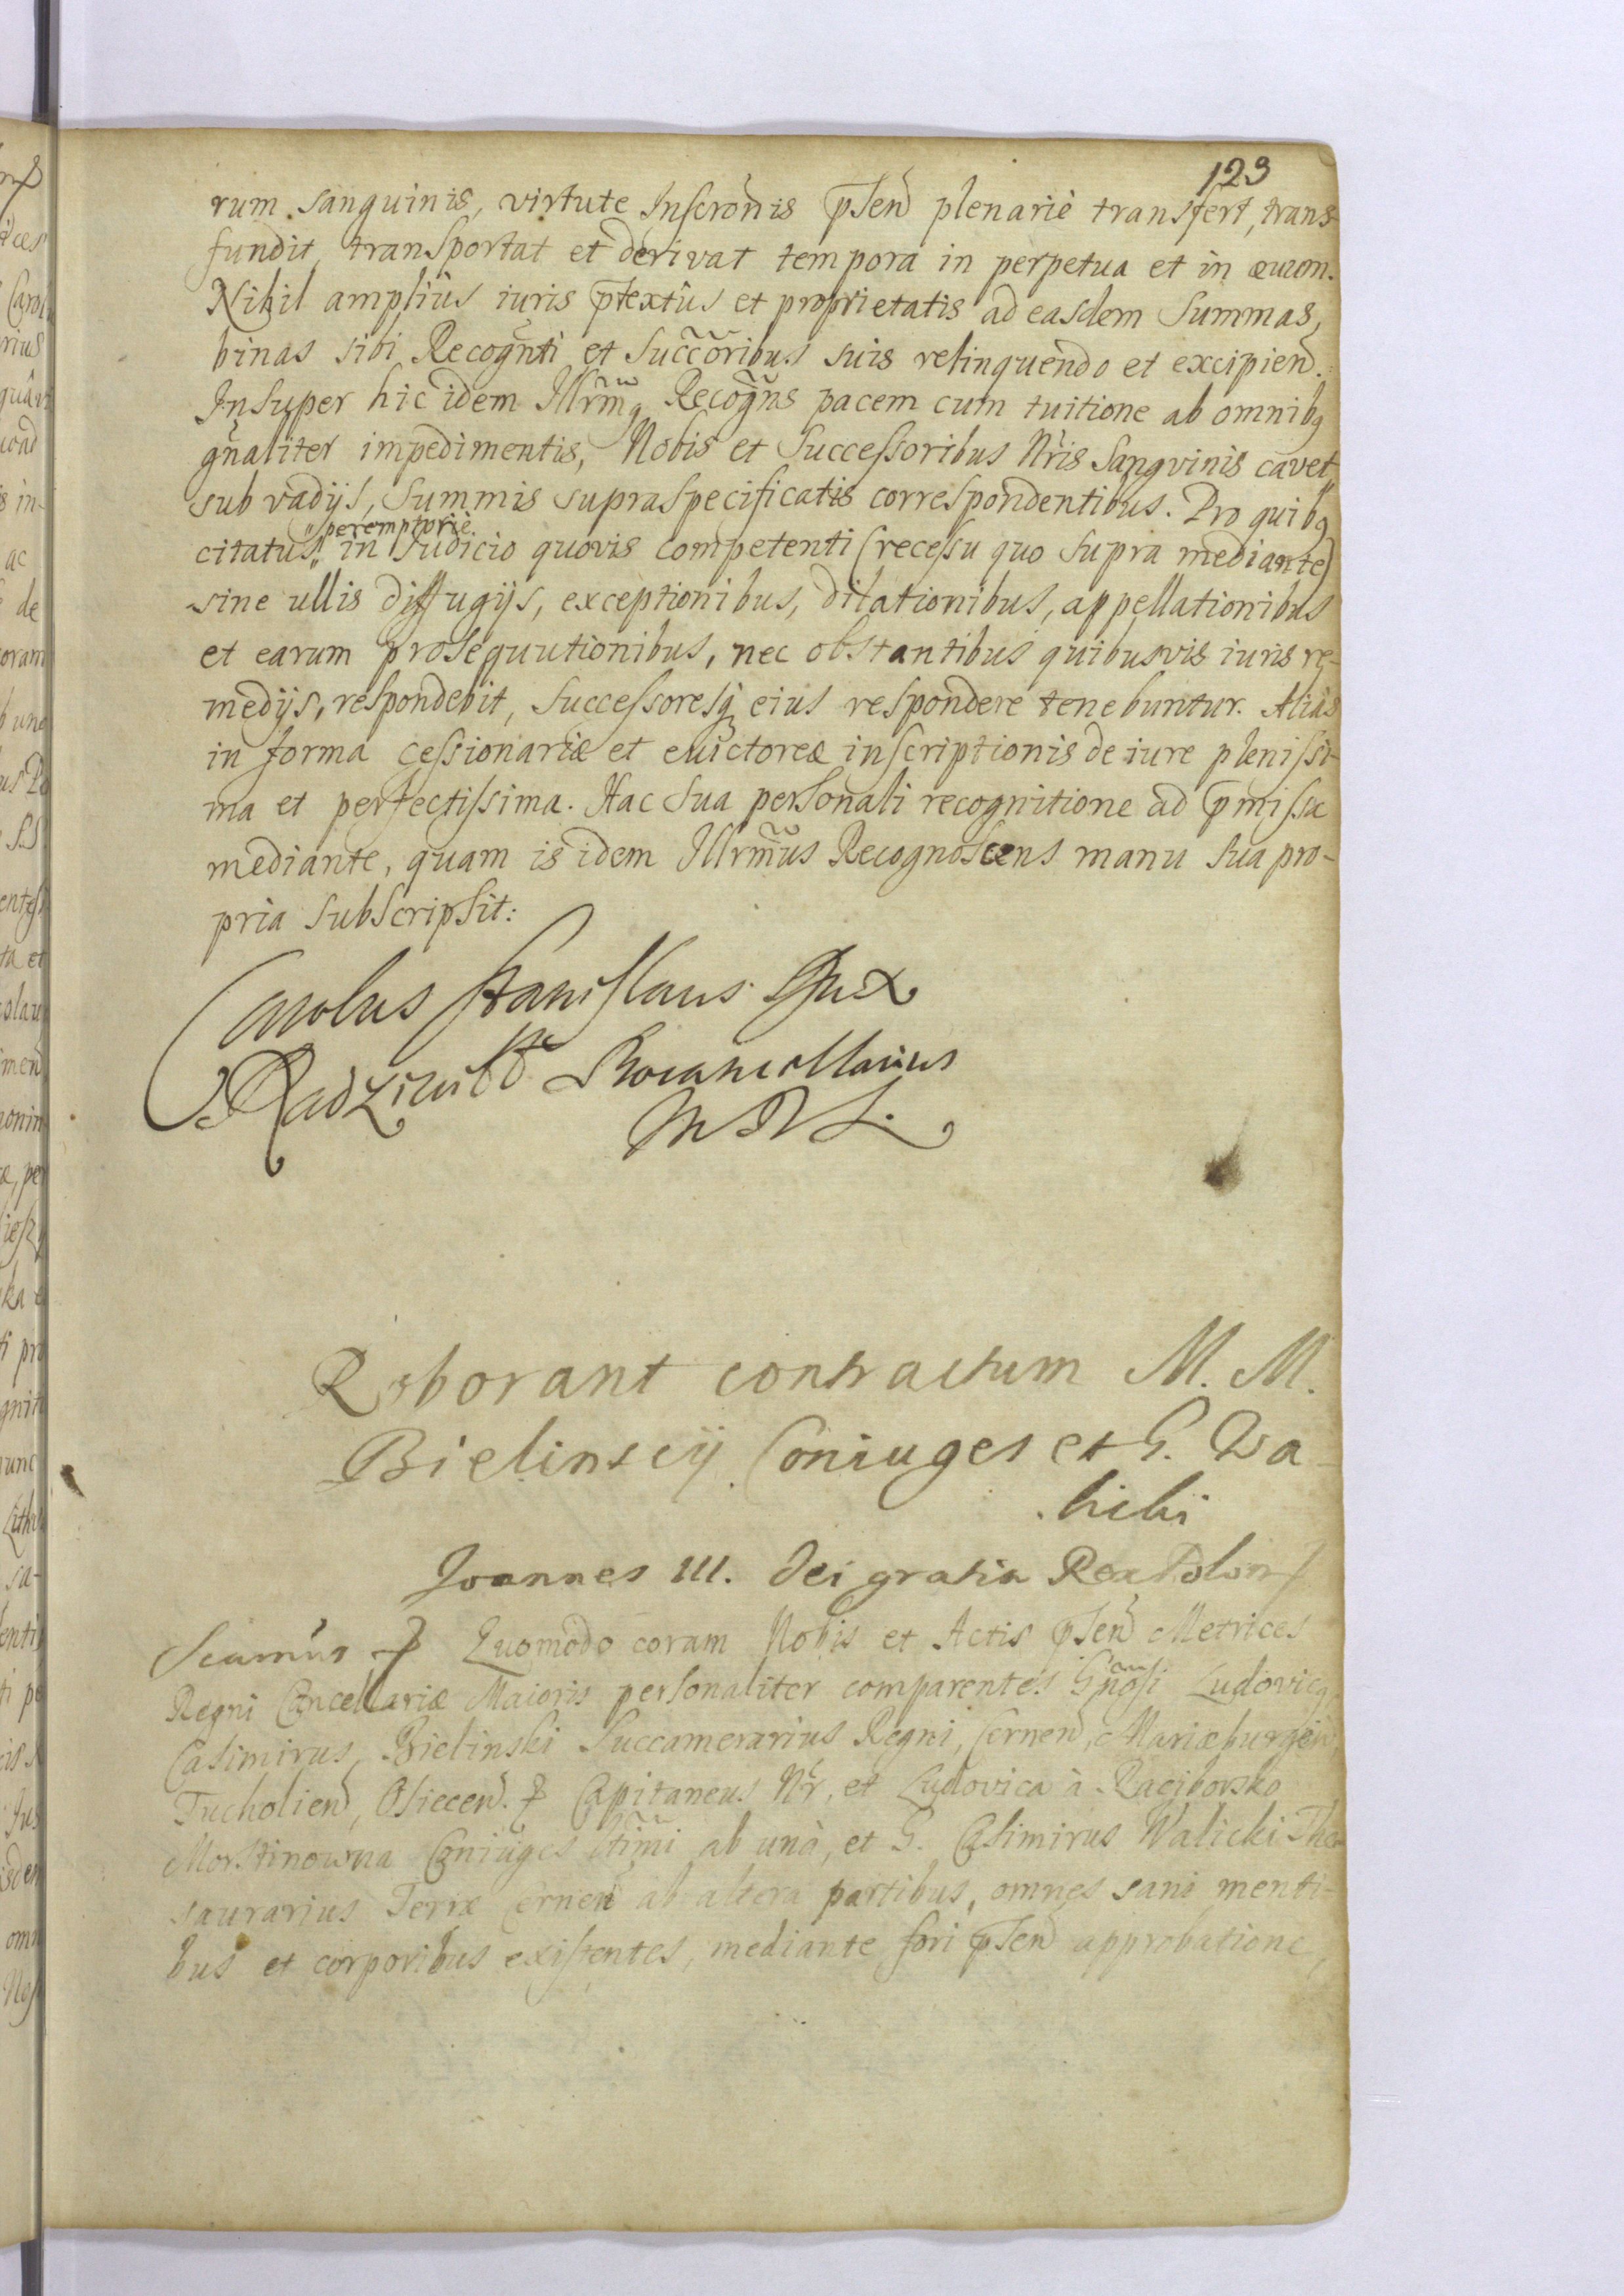 123
rum sanguinis, virtute Inscrõnis p̃sen̄ plenariè transfert, trans-
fundit, transportat et derivat tempora in perpetua et in ævum.
Nihil amplius iuris p̃textûs et proprietatis ad easdem Summas,
binas sibi Recogñti et Succc̃oribus suis relinquendo et excipien̄.
Insuper hic idem Illrm̃q Recogñs pacem cum tuitione ab omnibq
gñaliter impedimentis, Nobis et Successoribus Nr̃is Sangvinis cavet,
sub vadijs, Summis supraspecificatis correspondentibus. Pro quibq
peremptoriè
citatus in Iudicio quovis competenti (recessu quo supra mediante)
sine ullis diffugijs, exceptionibus, dilationibus, appellationibus
et earum prosequutionibus, nec obstantibus quibusvis iuris re-
medijs, respondebit, Successoresq́ eius respondere tenebuntur. Aliàs
in forma cessionariæ et evictoreæ inscriptionis de iure plenissi-
ma et perfectissima. Hac sua personali recognitione ad p̃missa
mediante, quam is idem Illrm̃us Recognoscens manu sua pro-
pria subscripsit:
Carolus Stanislaus Dux
Radziwiłł Procancellarius
M D L.
Roborant contractum M. M.
Bielinscij Coniuges et G. Wa-
licki
Joannes III. Dei gratia Rex Polon
Seamus Quomodo coram Nobis et Actis p̃sen̄ Metrices
Regni Cancellariæ Maioris personaliter comparentes Gñosi Ludovicq
Casimirus Bielinski Succamerarius Regni, Cernen̄, Mariæburgen̄,
Tucholien̄, Osiecen̄. Capitaneus Nr̃, et Ludovica à Raciborsko
Morstinowna Coniuges ltĩmi ab unà, et G. Casimirus Walicki The-
saurarius Terræ Cernen̄ ab altera partibus, omnes sani menti-
bus et corporibus existentes, mediante fori p̃sen̄ approbatione,